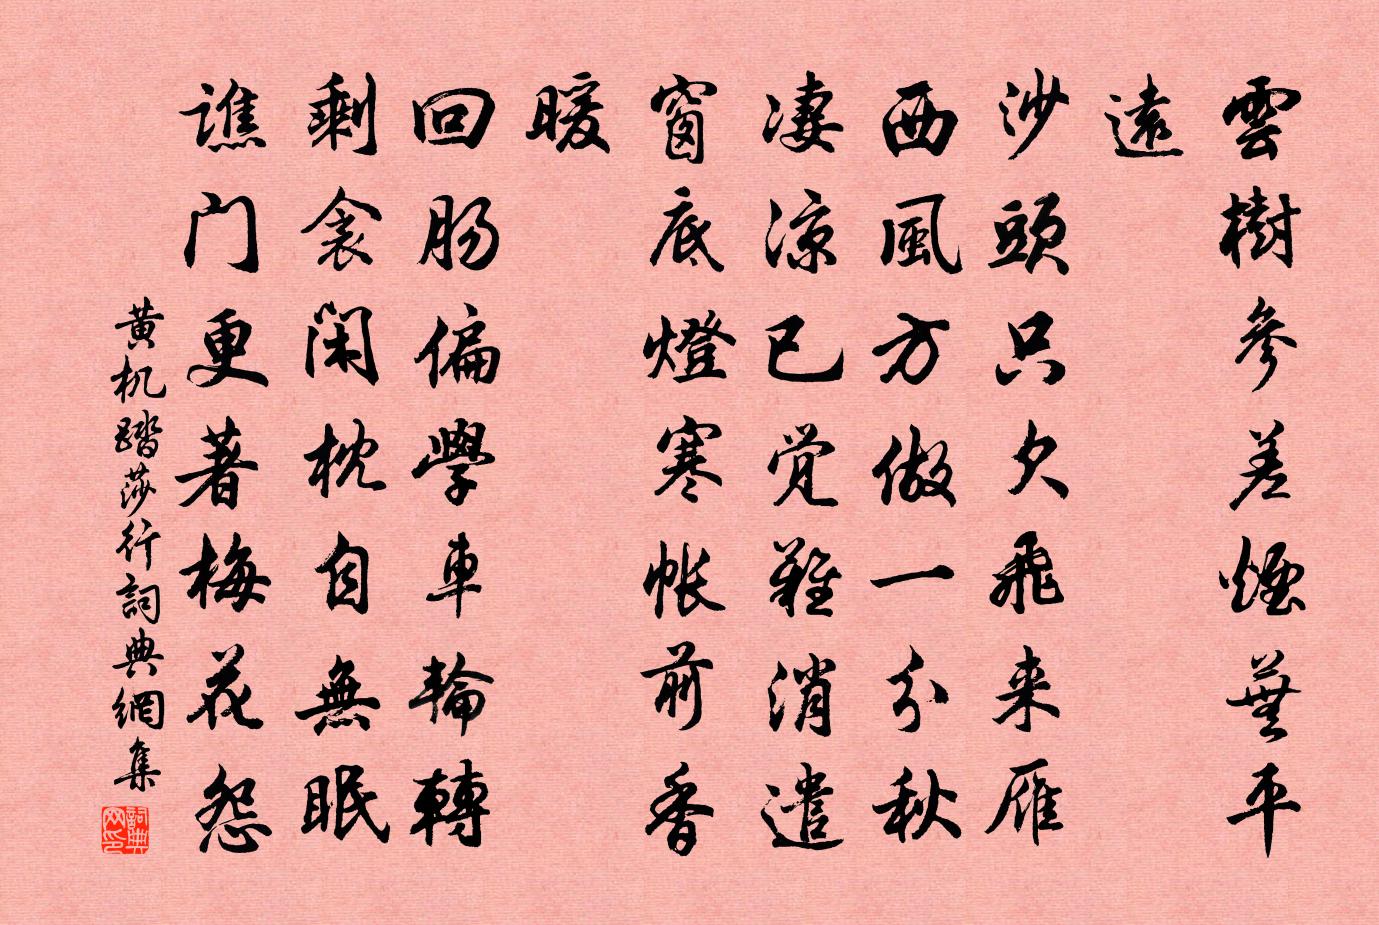 雲樹參差煙蕪平
遠
沙頭只欠飛来雁
西風方做一分秋
凄涼已覚難消遣
窗底燈寒帐前香
暖
回肠偏學車輪轉
剩衾闲枕自無眠
譙门更著梅花怨
黄机踏莎行詞典網集
詞典
网印